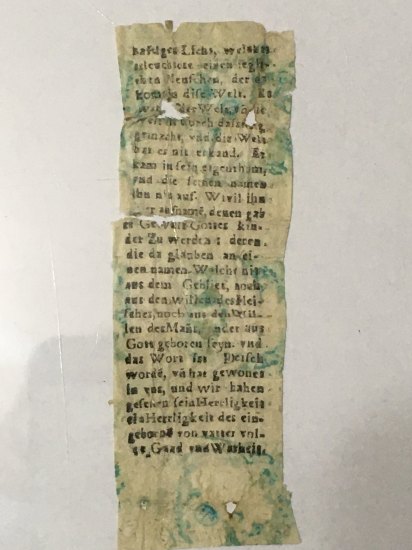 haftiges Licht, welches
erleuchtete einen iegli-
chen Menschen, der da
kom in dise Welt. Er
war der Welt,
Welt ist durch
gemacht, vnd die Welt
hat es nit erkand. Er
kam in sein eigenthum,
vnd die seinen namen
ihn nit auf. Wievil ihn
aufnamẽ, denen gab
er Gewalt Gottes kin-
der Zu werden: deren
die da glauben an sei-
nen namen. Welche nit
aus dem Geblüet, noch
aus den willen des Flei-
sches, noch aus den Wil-
len des Mañs, oder aus
Gott geboren seyn. vnd
das Wort ist Fleisch
wordẽ, vñ hat gewonet
in vns, und wir haben
gesehen sein Herrligkeit
ein Herrligkeit des ein-
gebornẽ von vatter vol-
er Gnad vnd Warheit.